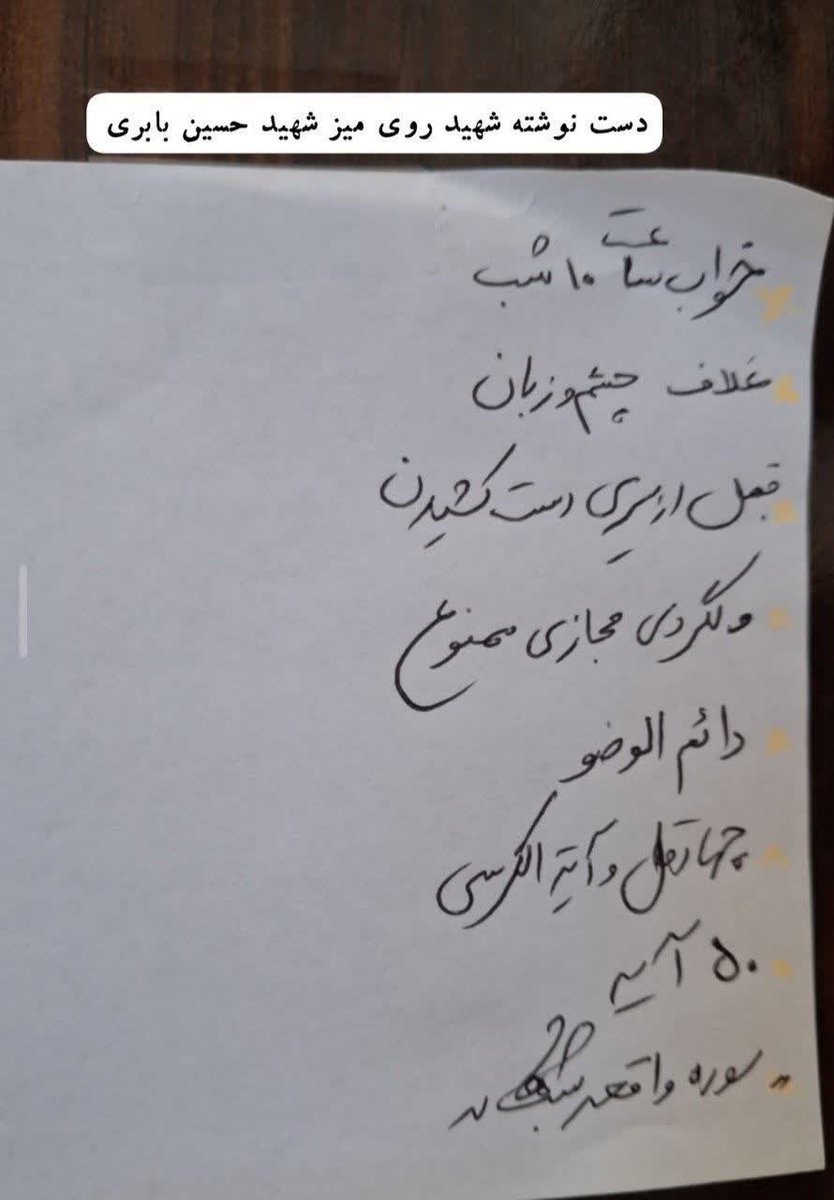 دست نوشته شهید روی میز شهید حسین بابری
خواب ساعت ۱۰ شب
غلاف چشم و زبان
قبل از سیری دست کشیدن
ولگردی مجازی ممنوع
دائم الوضو
چهارقل و آیة الکرسی
۵۰ آیه
سوره واقعه